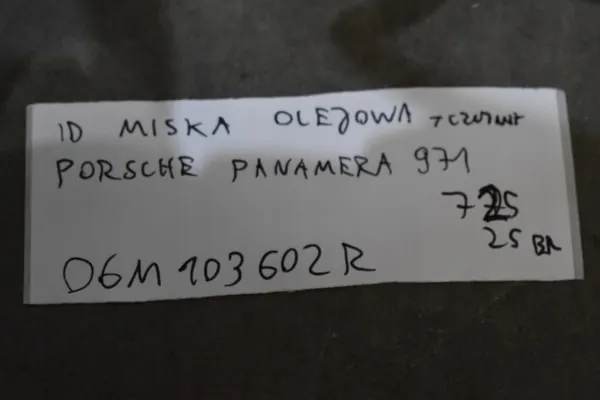 ID MISKA OLEJOWA
PORSCHE PANAMERA 971
7725
25 BR
06M103602R